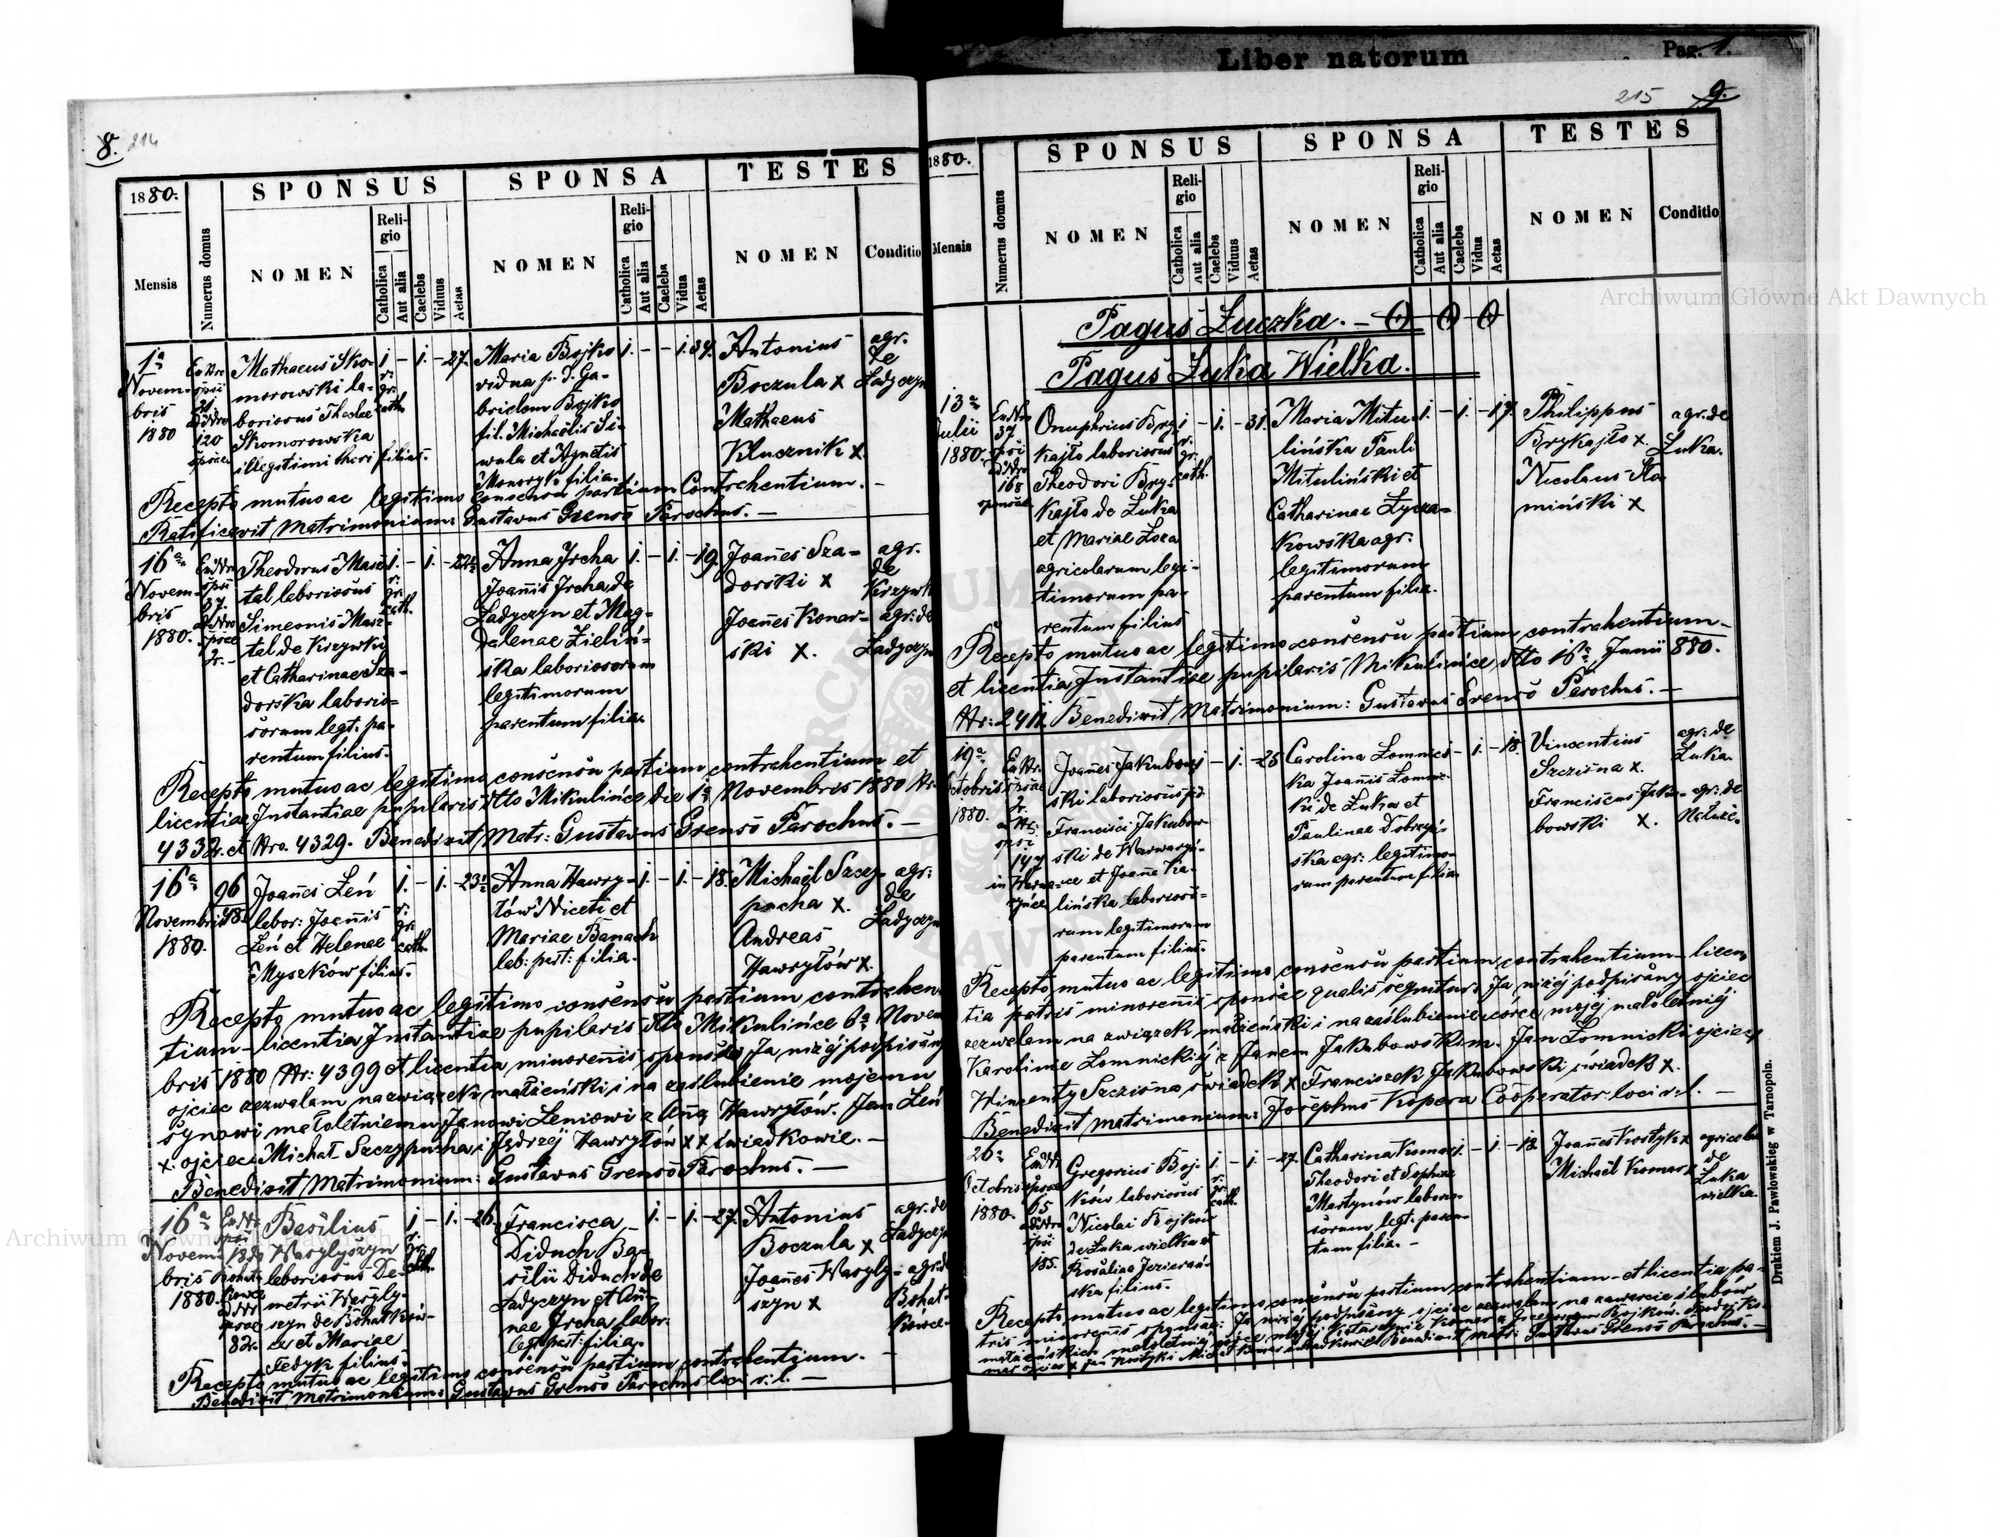 Liber natorum
Pag. 1.
8. 214
1880.
SPONSUS
SPONSA
TESTES
Mensis
Numerus domus
NOMEN
Religio
Catholica
Aut alia
Caelebs
Viduus
Aetas
NOMEN
Religio
Catholica
Aut alia
Caelebs
Vidua
Aetas
NOMEN
Conditio
1a
Novem-
bris
1880
120
Mathaeus Sko-
morowski la-
boriosus Theclae
Skomorowska
illegitimi thori filius.
1 - 1. - 27.
Maria Bojko
vidua p. d. Ga-
brielem Bojko
fil. Michaelis Si-
wula et Agnetis
filia.
1. - - 1. 34.
Antonius
Boczula x
Mathaeus
Klucznik x
agr.
de
Ladyczyn
Recepto mutuo ac legitimo consensu partium Contrahentium. -
Ratificavit Matrimonium: Gustavus Grensō Parochus. -
16a
Novem-
bris
1880.
Theodorus Masz-
tal laboriosus
Simeonis Masz-
tal de Krzywki
et Catharinae Sza-
dorska laborio-
sorum legt. pa-
rentum filius.
Anna Jrcha
Joannis Jrcha de
Ladyczyn et Mag-
dalenae Zieliń-
ska laboriosorum
legitimorum
parentum filia.
1. - 1. - 19.
Joannes Sza-
dorski x
Joannes Konar-
ski x.
agr.
de
Krzywki
agr. de
Ladyczyn
Recepto mutuo ac legitimo consensu partium contrahentium et
licentia Instantiae pupilaris dtto Mikulińce die 1a Novembris 1880 Nr.
4332. et Nro. 4329. Benedixit Matr: Gustavus Grensō Parochus. -
16a
Novembris
1880.
96
Joannes Leń
labor: Joannis
Leń et Helenae
Myszków filius.
Anna Hawry-
tów Niceti et
Mariae Banach
lab: part: filia.
1. - 1. - 18.
Michael Szczy-
pucha x.
Andreas
Hawrytów x.
agr:
de
Ladyczyn
Recepto mutuo ac legitimo consensu partium contrahen-
tium - licentia Instantiae pupilaris dtto Mikulińce 6a Novem-
bris 1880 Nr: 4399 et licentia minorennis sponsi: Ja niżéj podpisany
ojciec zezwalam na związek małżeński i na zaślubienie mojemu
synowi małoletniemu Janowi Leniowi z Anną Hawrytów. Jan Leń
x. ojciec Michał Szczypucha i Jędrzéj Hawrytów x x świadkowie. -
Benedixit Matrimonium: Gustavus Grensō Parochus. -
16a
Novem-
bris
1880.
82.
Basilius
Wasylyszyn
laboriosus De-
metrii Wasyly-
szyn de Bohatków-
ce et Mariae
Fedyk filius.
1 - 1. - 26.
Francisca
Diduch Ba-
silii Diduch de
Ladyczyn et An-
nae Jrcha labor.
leg. part: filia.
1. - 1. - 27.
Antonius
Boczula x
Joannes Wasyly-
szyn x
agr. de
Ladyczyn
agr. de
Bohat-
kowce
Recepto mutuo ac legitimo consensu partium contrahentium. -
Benedixit Matrimonium: Gustavus Grensō Parochus loci r. l. -
215 9.
1880.
SPONSUS
SPONSA
TESTES
Mensis
Numerus domus
NOMEN
Religio
Catholica
Aut alia
Caelebs
Viduus
Aetas
NOMEN
Religio
Catholica
Aut alia
Caelebs
Vidua
Aetas
NOMEN
Conditio
Pagus Łuczka. -
Pagus Łuka Wielka.
13a
Julii
1880.
37
168
Onuphrius Bry-
kajło laboriosus
Theodori Bry-
kajło de Łuka
et Mariae Łoza
agricolarum legi-
timorum pa-
rentum filius
1 - 1. - 31.
Maria Mitu-
lińska Pauli
Mituliński et
Catharinae Łycza-
kowska agr.
legitimorum
parentum filia.
1. - 1. - 17.
Philippus
Brykajło x.
Nicolaus Ka-
miński x
agr. de
Łuka.
Recepto mutuo ac legitimo consensu partium contrahentium -
et licentia Instantiae pupilaris Mikulińce dtto 16a Junii 880.
Nr: 2411. Benedixit Matrimonium: Gustavus Grensō Parochus. -
19a
Octobris
1880.
147
Joannes Jakubow-
ski laboriosus
Francisci Jakubow-
ski de Warwaryń-
ce et Joanna Ka-
lińska laborioso-
rum legitimorum
parentum filius.
1 - 1. - 25
Carolina Łomnic-
ka Joannis Łomnic-
ki de Łuka et
Paulinae Dobrzyń-
ska agr: legitimo-
rum parentum filia
1. - 18.
Vincentius
Szcześna x.
Franciscus Jaku-
bowski x.
agr. de
Łuka.
agr. de
Recepto mutuo ac legitimo consensu partium contrahentium - licen-
tia patris minorennis sponsae qualis sequitur: Ja niżéj podpisany ojciec
zezwalam na związek małżeński i na zaślubienie córce mojéj małoletniéj
Karolinie Łomnickiéj z Janem Jakubowskim. Jan Łomnicki ojciec,
Wincenty Szcześna świadek x Franciszek Jakubowski świadek x.
Benedixit Matrimonium: Josephus Kopera Cooperator loci r. l. -
26a
Octobris
1880.
65
185.
Gregorius Boj-
ków laboriosus
Nicolai Bojków
de Łuka wielka et
Rosaliae Jezierań-
ska filius.
1. - 1. - 27.
Catharina Komar
Theodori et Sophiae
Martynów laborio-
sorum legt. paren-
tum filia. -
1. - 1. - 18.
Joannes Kostyk x
Michael Komar x
agricolae
de
Łuka
wielka.
Recepto mutuo ac legitimo consensu partium contrahentium - et licentia pa-
tris minorennis sponsae: Ja niżéj podpisany ojciec zezwalam na zawarcie ślubów
Benedixit Matr: Gustavus Grensō Parochus. -
Drukiem J. Pawłowskieg w Tarnopolu.
Archiwum Główne Akt Dawnych
Archiwum Główne Akt Dawnych